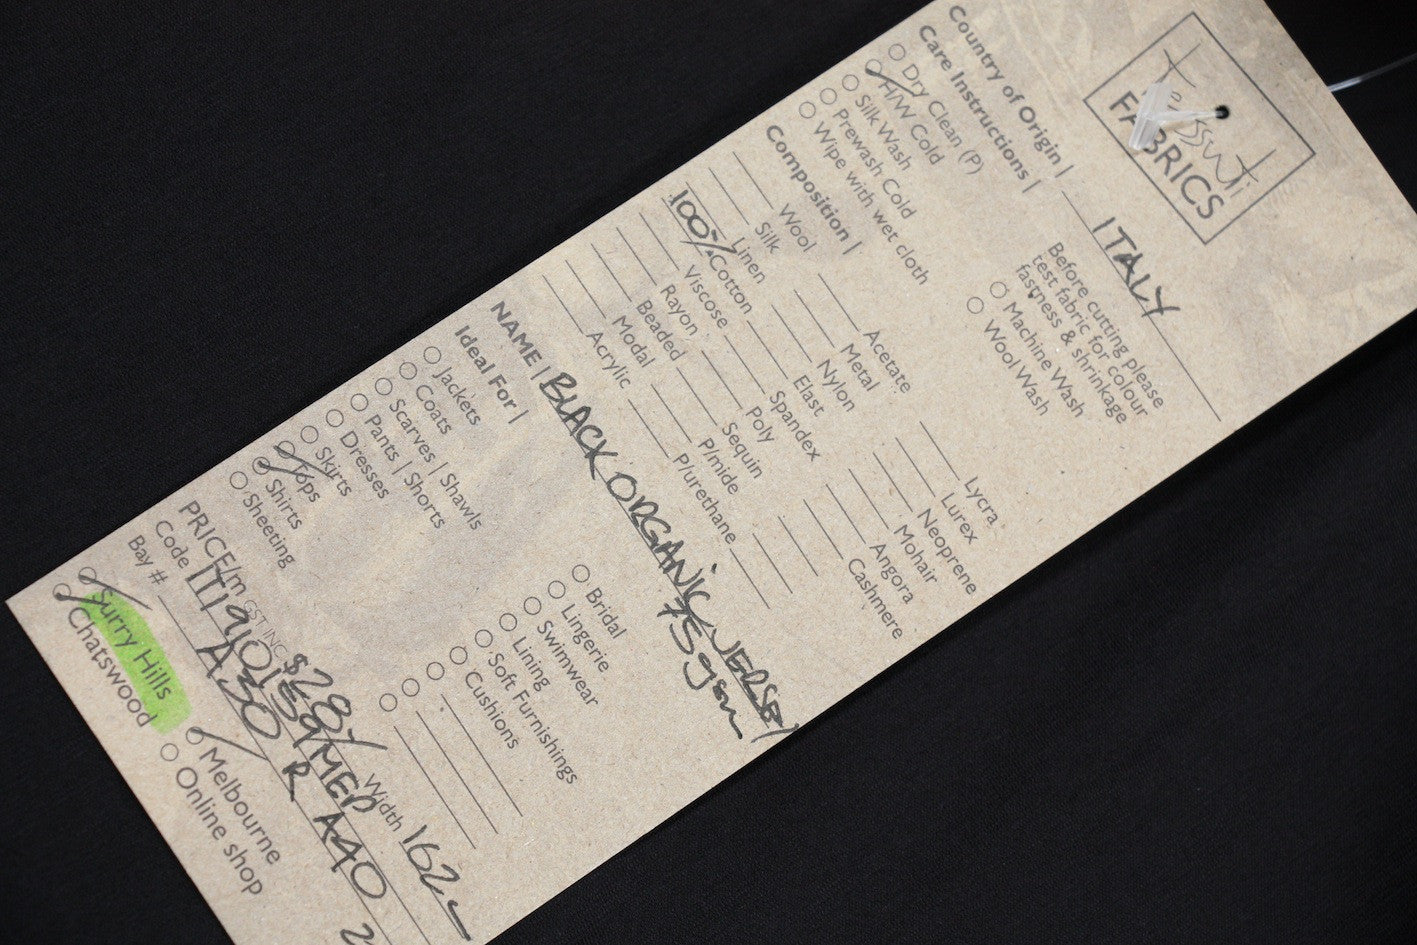 tessuti
FABRICS
Country of Origin | ITALY
Care Instructions |
Dry Clean (P)
H/W Cold
Silk Wash
Prewash Cold
Wipe with wet cloth
Before cutting please
test fabric for colour
fastness & shrinkage
Machine Wash
Wool Wash
Composition |
Wool
Silk
Linen
100% Cotton
Viscose
Rayon
Beaded
Modal
Acrylic
Acetate
Metal
Nylon
Elast
Spandex
Poly
Sequin
P/mide
P/urethane
Lycra
Lurex
Neoprene
Mohair
Angora
Cashmere
NAME | BLACK ORGANIC JERSEY
175 gsm
Ideal For |
Jackets
Coats
Scarves | Shawls
Pants | Shorts
Dresses
Skirts
Tops
Shirts
Sheeting
Bridal
Lingerie
Swimwear
Lining
Soft Furnishings
Cushions
PRICE/m GST INC $29/ Width 162
Code
Bay # A30 R A40
Surry Hills
Chatswood
Melbourne
Online shop